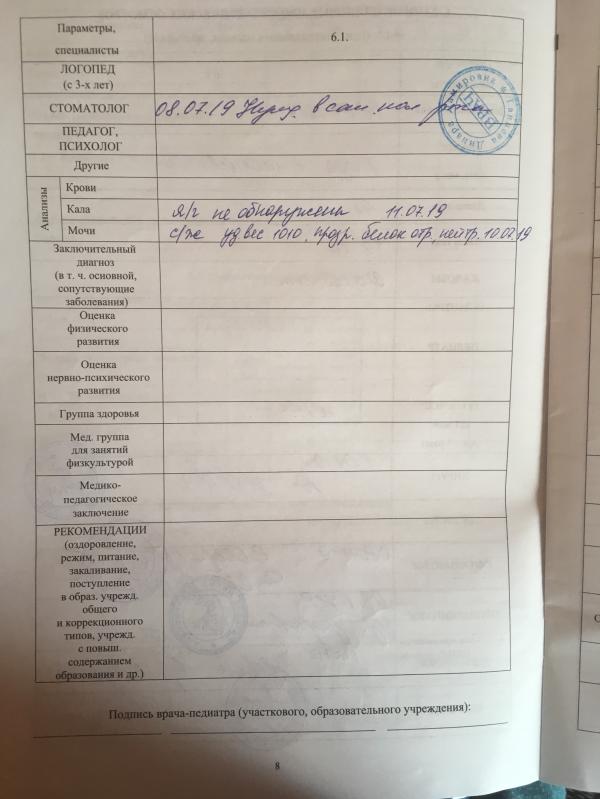 Параметры,
специалисты
6.1.
ЛОГОПЕД
(с 3-х лет)
СТОМАТОЛОГ
08.07.19 Нужд. в сан. пол. рта
ВРАЧ
Динара
ПЕДАГОГ,
ПСИХОЛОГ
Другие
Анализы
Крови
Кала
я/г не обнаружены 11.07.19
Мочи
с/ж уд вес 1010, прозр. белок отр, нейтр. 10.07.19
Заключительный
диагноз
(в т. ч. основной,
сопутствующие
заболевания)
Оценка
физического
развития
Оценка
нервно-психического
развития
Группа здоровья
Мед. группа
для занятий
физкультурой
Медико-
педагогическое
заключение
РЕКОМЕНДАЦИИ
(оздоровление,
режим, питание,
закаливание,
поступление
в образ. учрежд.
общего
и коррекционного
типов, учрежд.
с повыш.
содержанием
образования и др.)
Подпись врача-педиатра (участкового, образовательного учреждения):
8